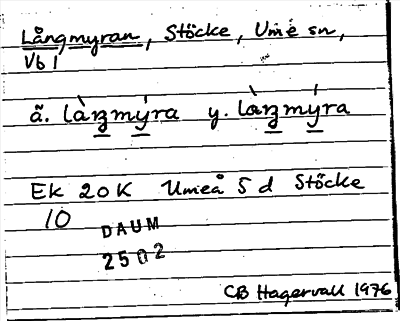 Långmyran, Stöcke, Umeå sn,
Vb l
ä. làŋmýra y. làŋmýra
Ek 20 K Umeå S d Stöcke
10
DAUM
2502
CB Hagervall 1976